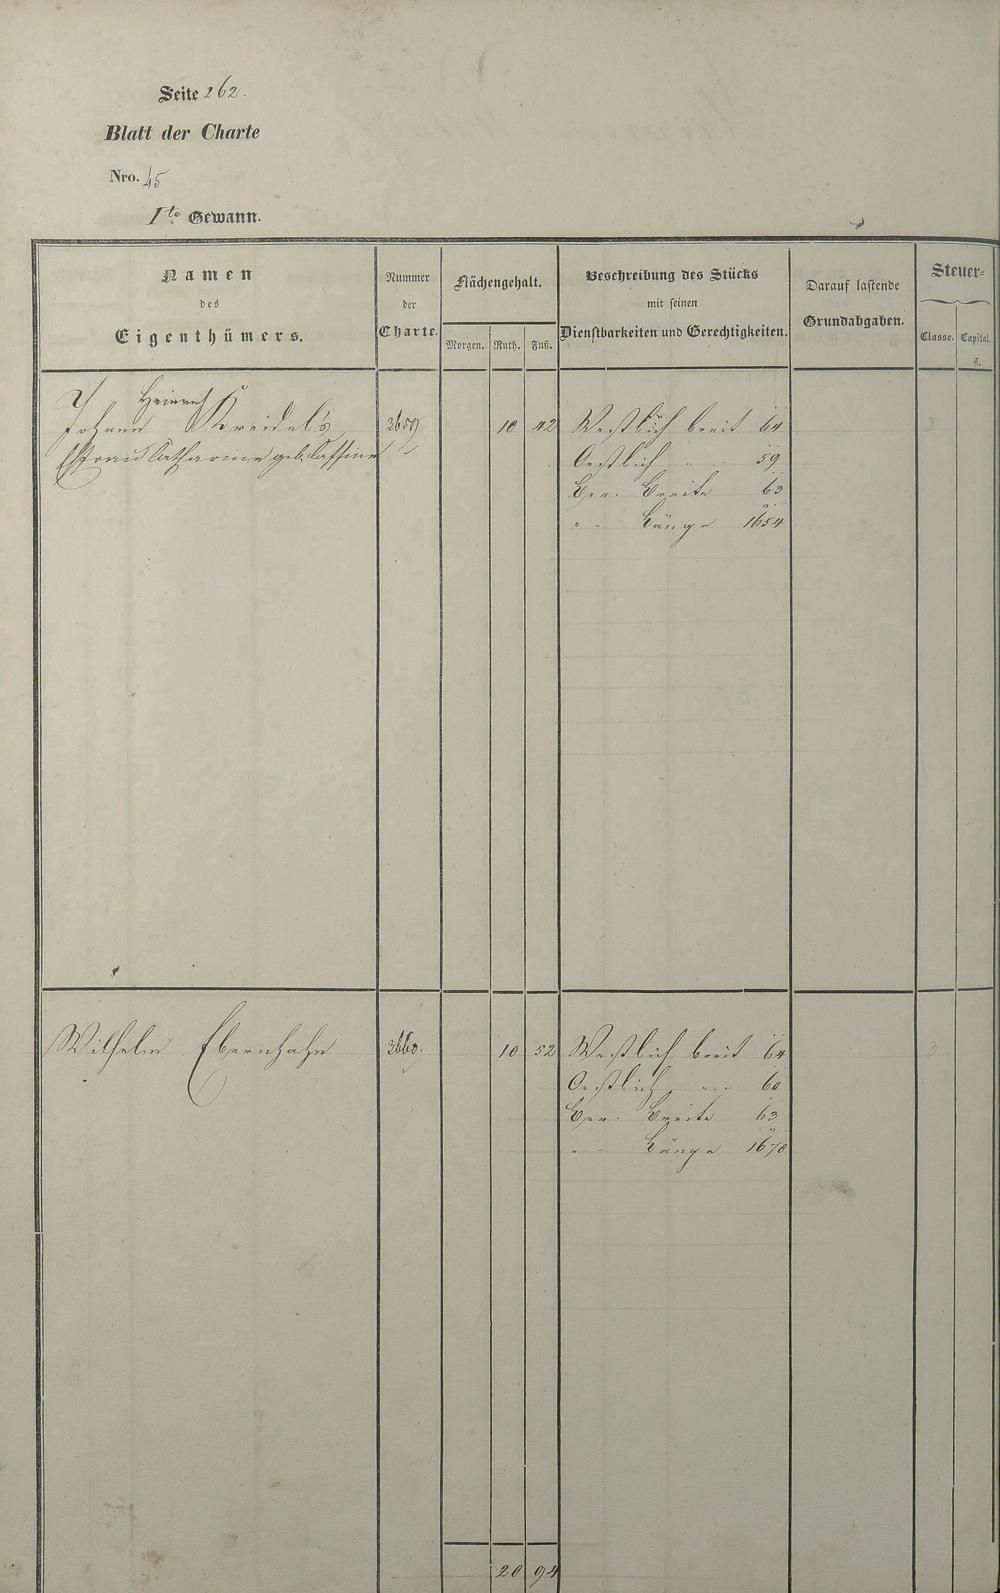 Seite 262.
Blatt der Charte
Nro. 45
1te Gewann.
Namen
des
Eigenthümers.
Nummer
der
Charte.
Flächengehalt.
Morgen. Ruth. Fuß.
Beschreibung des Stücks
mit seinen
Dienstbarkeiten und Gerechtigkeiten.
Darauf lastende
Grundabgaben.
Steuer=
Classe. Capital.
fl.
Heinrich
Johann Kreidel's 3659 10 42 Westlich breit 64 3
Ehfrau Catharine geb. Oestlich " " 59
Ber. Breite 63
" " Länge 1654
Wilhelm Ebernhahn 3660. 10 52 Westlich breit 64 3
Oestlich " " 60
Ber. Breite 63
" " Länge 1670
20 94